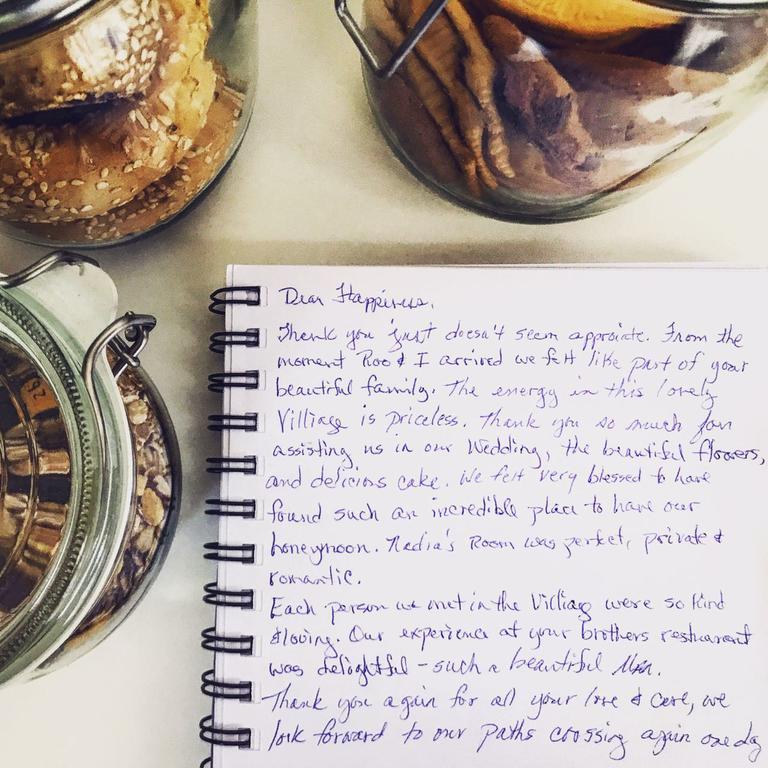 Dear Happiness,
Thank you just doesn't seem approiate. From the
moment Roo & I arrived we felt like part of your
beautiful family. The energy in this lovely
Villiage is priceless. Thank you so much for
assisting us in our Wedding, the beautiful flowers,
and delicious cake. We felt very blessed to have
found such an incredible place to have our
honeymoon. Nadia's Room was perfect, private &
romantic.
Each person we met in the Villiage were so kind
& loving. Our experience at your brothers restuarant
was delightful - such a beautiful Man.
Thank you again for all your love & care, we
look forward to our paths crossing again one day